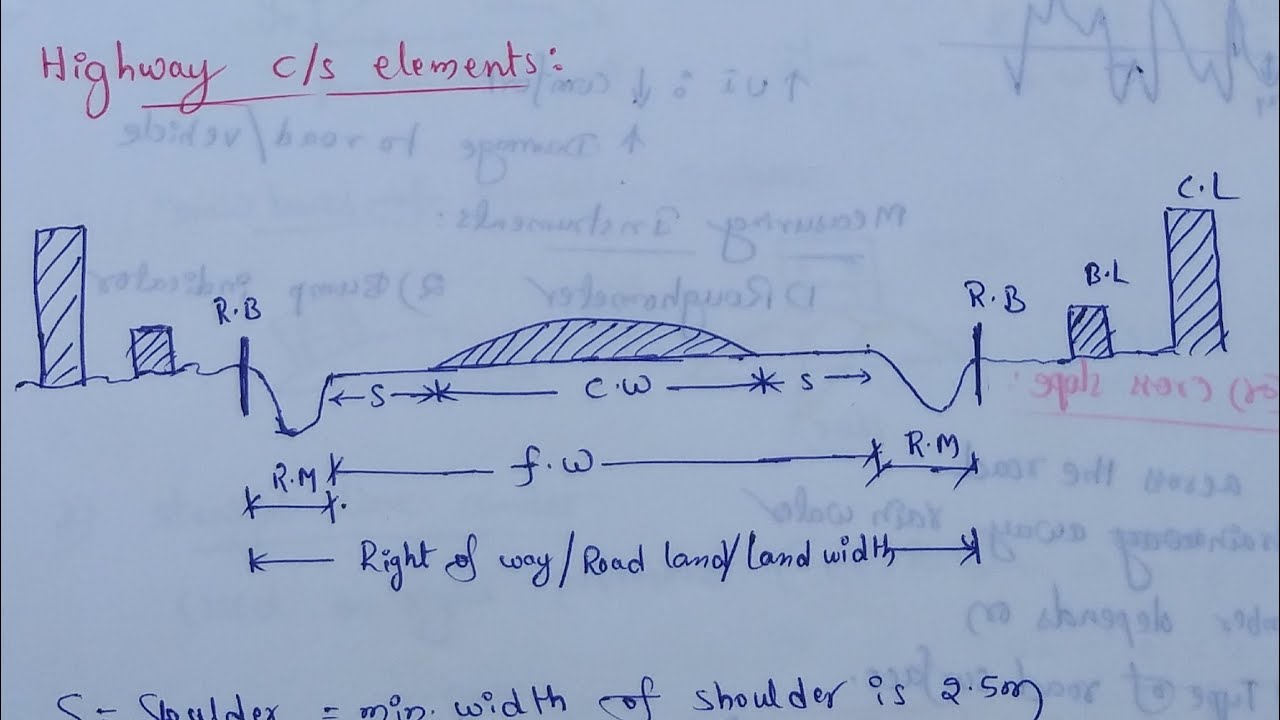 Highway c/s elements:
C.L
B.L
R.B
R.B
S
C.W
S
R.M
f.w
R.M
Right of way/Road land/Land width
S - Shoulder = min. width of shoulder is 2.5m